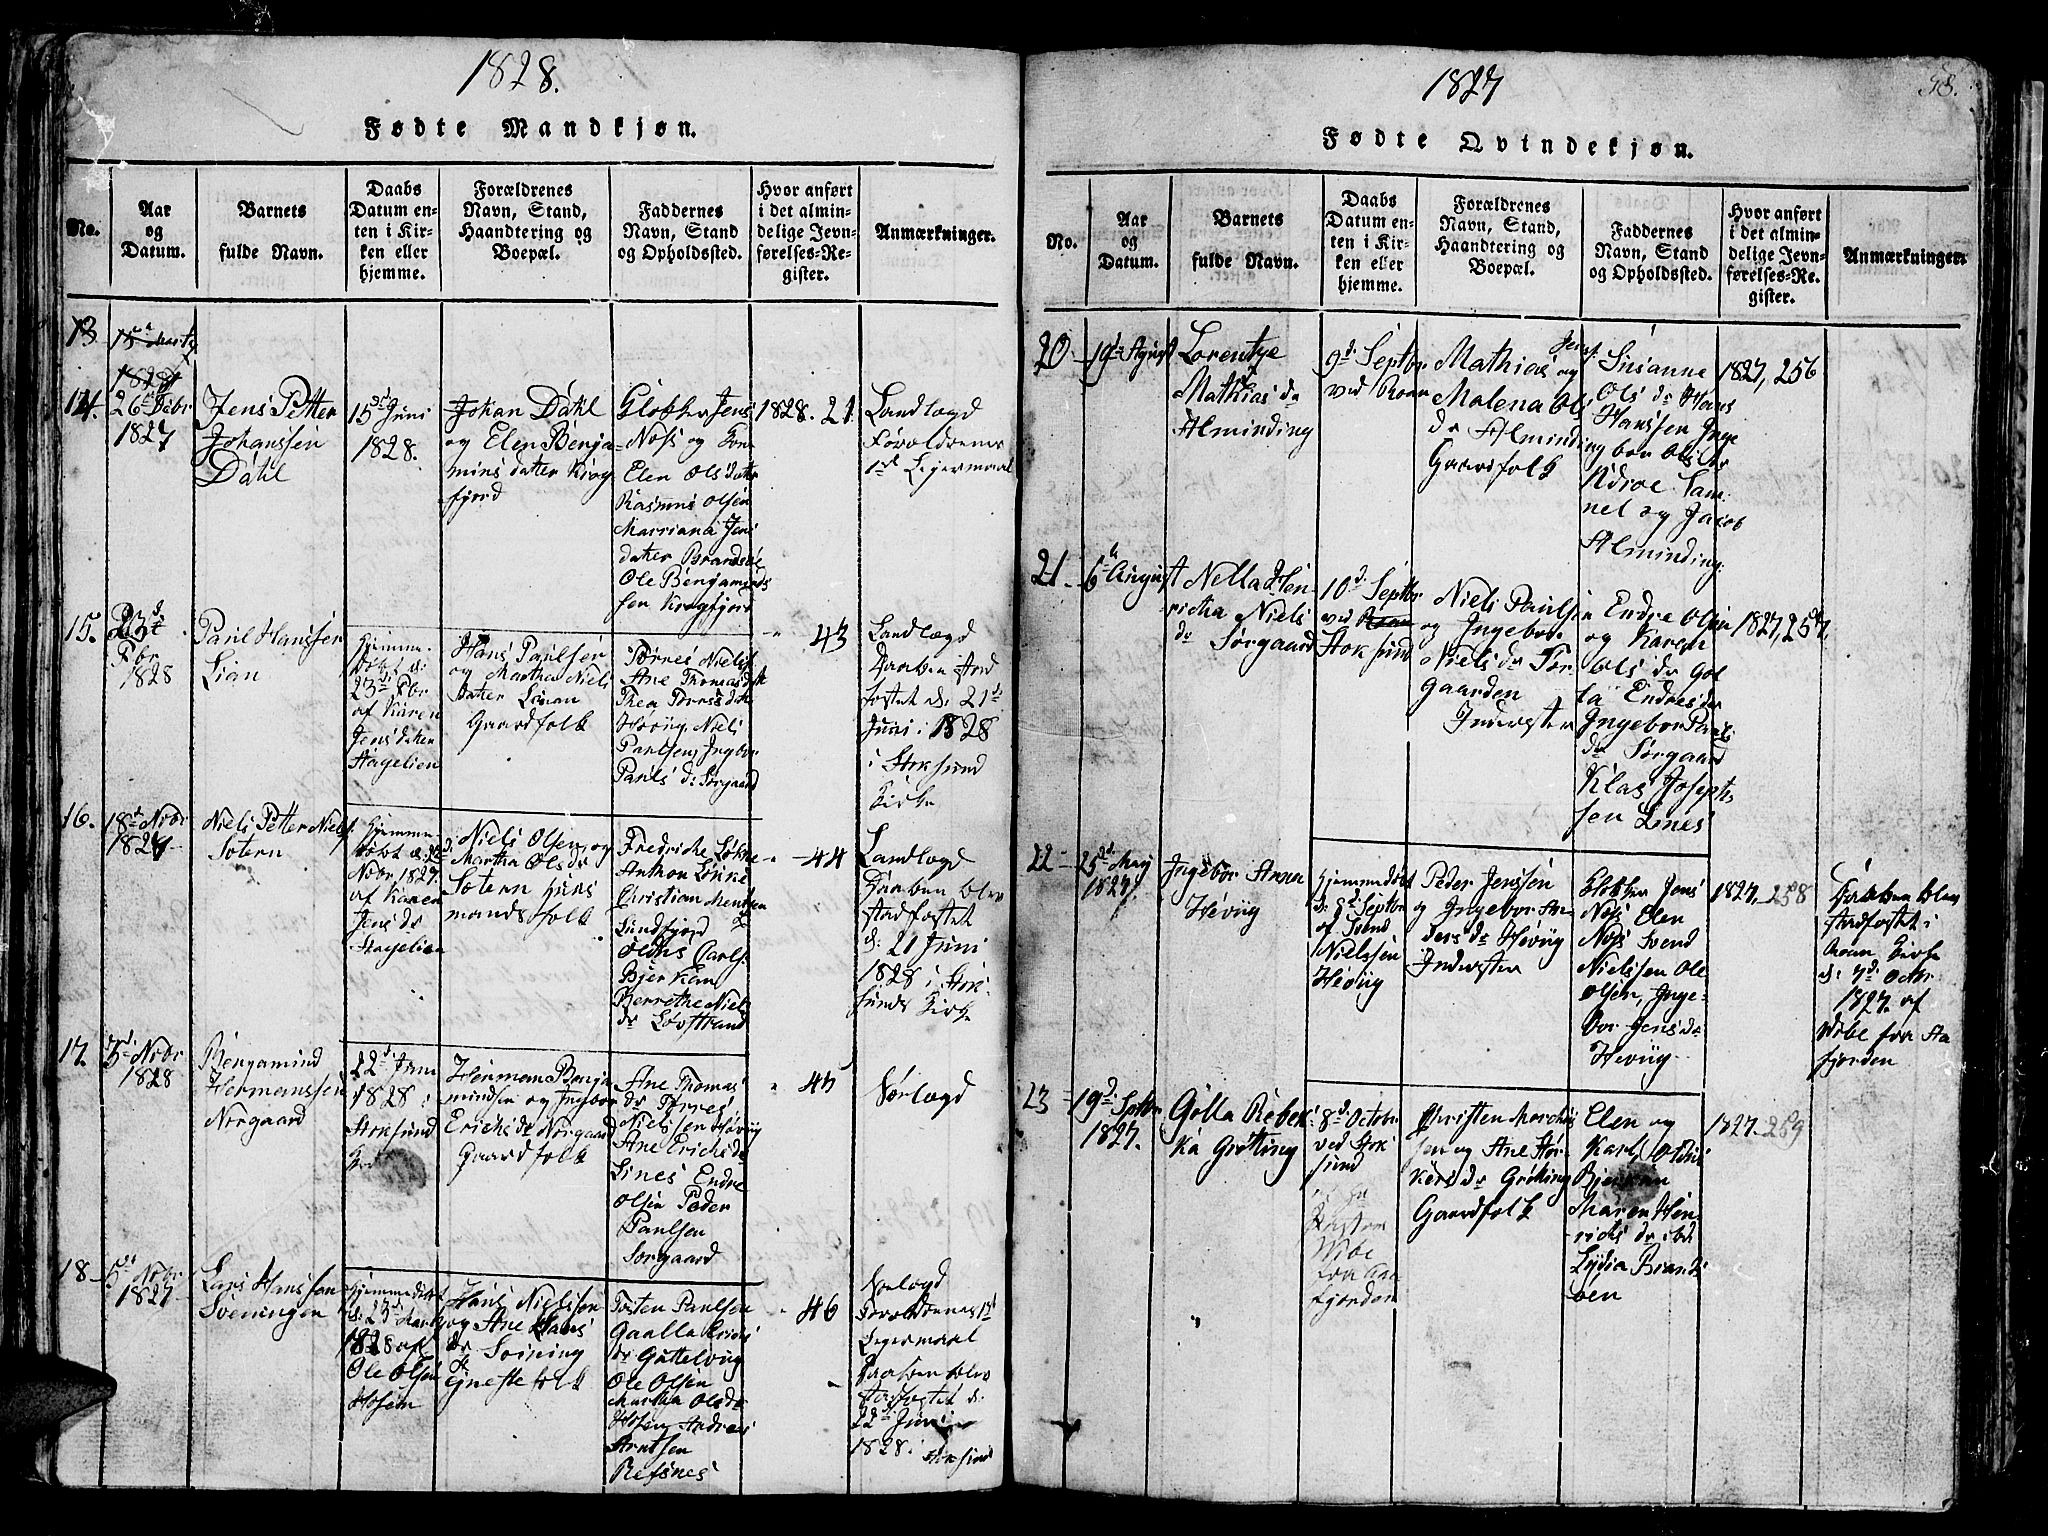 1828.
Fødte Mandkjøn.
No.
Aar
og
Datum.
Barnets
fulde Navn.
Daabs
Datum en-
ten i Kir-
ken eller
hjemme.
Forældrenes
Navn, Stand,
Haandtering og
Boepæl.
Faddernes
Navn, Stand
og Opholdssted.
Hvor anført
i det almin-
delige Jevn-
førelses-Re-
gister.
Anmærkninger.
13
14.
26 Debr
1827
Jens Petter
Johanssen
Dahl
15d Juni
1828.
Johan Dahl
og Elen Benja
mins datter Krog
fjord
Klokker Jens
Noss og Kon
Elen Ols datter
Rasmus Olsen
Marriana Jens
datter
Ole Benjamins
sen Krogfjord
1828. 21.
Landlægd
Forældrenes
1ste Leiermaal
15.
23d
Fbr
1828
Paul Hanssen
Lian
Hjemme-
døbt d:
23d Fbr
af Karen
Jens datter
Hagelien
Hans Paulsen
og Martha Niels
datter Lian
Gaardfolk
Tørres Niels
Ane Thomas datt
Thea Tørres datt
Høvug Niels
Paulsen, Ingbor
Pauls d: Sørgaard
" 43
Landlægd
Daaben stad
fæstet d: 21d
Juni 1828
i Stoksund
Kirke
16.
18d Nvbr
1827
Niels Petter Niels
Sætern
Hjemme-
døbt d:
Nvbr 1827.
af Karen
Jens dr
Hagelien
Niels Olsen og
Martha Ols dr
Sætern Huus
mandsfolk
Fredriche Løkke
Anthon Løkke
Christian
Sundfjord
Carls
Bjerkem
Berrethe Niels
dr Løvstrand
" 44
Landlægd
Daaben blev
stadfæstet
d: 21 Juni
1828 i Stok-
sunds Kirke
17.
3d Nvbr
1828
Bengamind
Hermanssen
Norgaard
22d Juni
1828 i
Stoksund
Herman Benja
mindsen og Ingbor
Erichs dr Norgaard
Gaardfolk
Ane Thomas
dr Tørres
Nielssen Høvug
Ane Erichs dr
Lines Endre
Olsen Peder
Paulsen
Sørgaard
" 45
Sørlægd
18
5d Nvbr
1827
Lars Hanssen
Sveningen
Hjemmedøbt
d: 23d
1828 af
Ole Olsen
Hosen
Hans Nielssen
og Ane Hans
dr Svining
Tjeneste folk
Torsten Paulsen
Gaalla Erichs
dr Gittelvug
Ole Olsen
Martha Ols dr
Hosen Andreas
Arntsen
Refsnes
" 46
Sørlægd
Forældrenes 1ste
Leiermaal
Daaben blev
stadfæstet d:
22d Juni
1828. Stoksund
1827
58.
Fødte Qvindekjøn.
No.
Aar
og
Datum.
Barnets
fulde Navn.
Daabs
Datum en-
ten i Kir-
ken eller
hjemme.
Forældrenes
Navn, Stand,
Haandtering og
Boepæl.
Faddernes
Navn, Stand
og Opholdssted.
Hvor anført
i det almin-
delige Jevn-
førelses-Re-
gister.
Anmærkninger.
20
19d August
Lorentze
Mathias dr
Alminding
9d Septbr
ved Roan
Mathias Jens
og
Malena Ols
dr Alminding
Gaardfolk
Susanne
Ols dr Hans
Hanssen Inge
bor Ols dr
Kiran Sam
uel og Jacob
Alminding
1827, 256
21
6te August
Nella Hen
richa Niels
dr Sørgaard
10d Septbr
ved Roan
Stoksund
Niels Paulsen
og Ingebor
Niels dr Sør
Gaarden
Inderster
Endre Olsen
og Karen
Ols dr Gol
la Endres dr
Ingebor Pauls
dr Sørgaard
Klas Joseph
sen Lines
1827, 257.
22
25d May
1827.
Ingebor Anna
Hevug
Hjemmedøbt
d: 8d Septbr
af Svend
Nielssen
Hevug
Peder Jenssen
og Ingebor An
ders dr Hevug
Inderster
Klokker Jens
Noss Elen
Noss Svend
Nielssen Ole
Olsen, Inge-
bor Jens dr
Hevug
1827. 258
Daaben blev
stadfæstet i
Roan Kirke
d: 7d Octbr
1827. af
Wibe fra Aa
fjorden
23
19d Septbr
1827.
Golla Rebek
ka Grøtting
8d Octobr
ved Stok
sund
af Hr
Pastor
Wibe
fra Aa
fjorden
Christen
sen og Ane
dr Grøtting
Gaardfolk
Elen og
Karl
Bjerkem
Maren Hen
richs dr ibd
Lydia Brands
øen
1827. 259